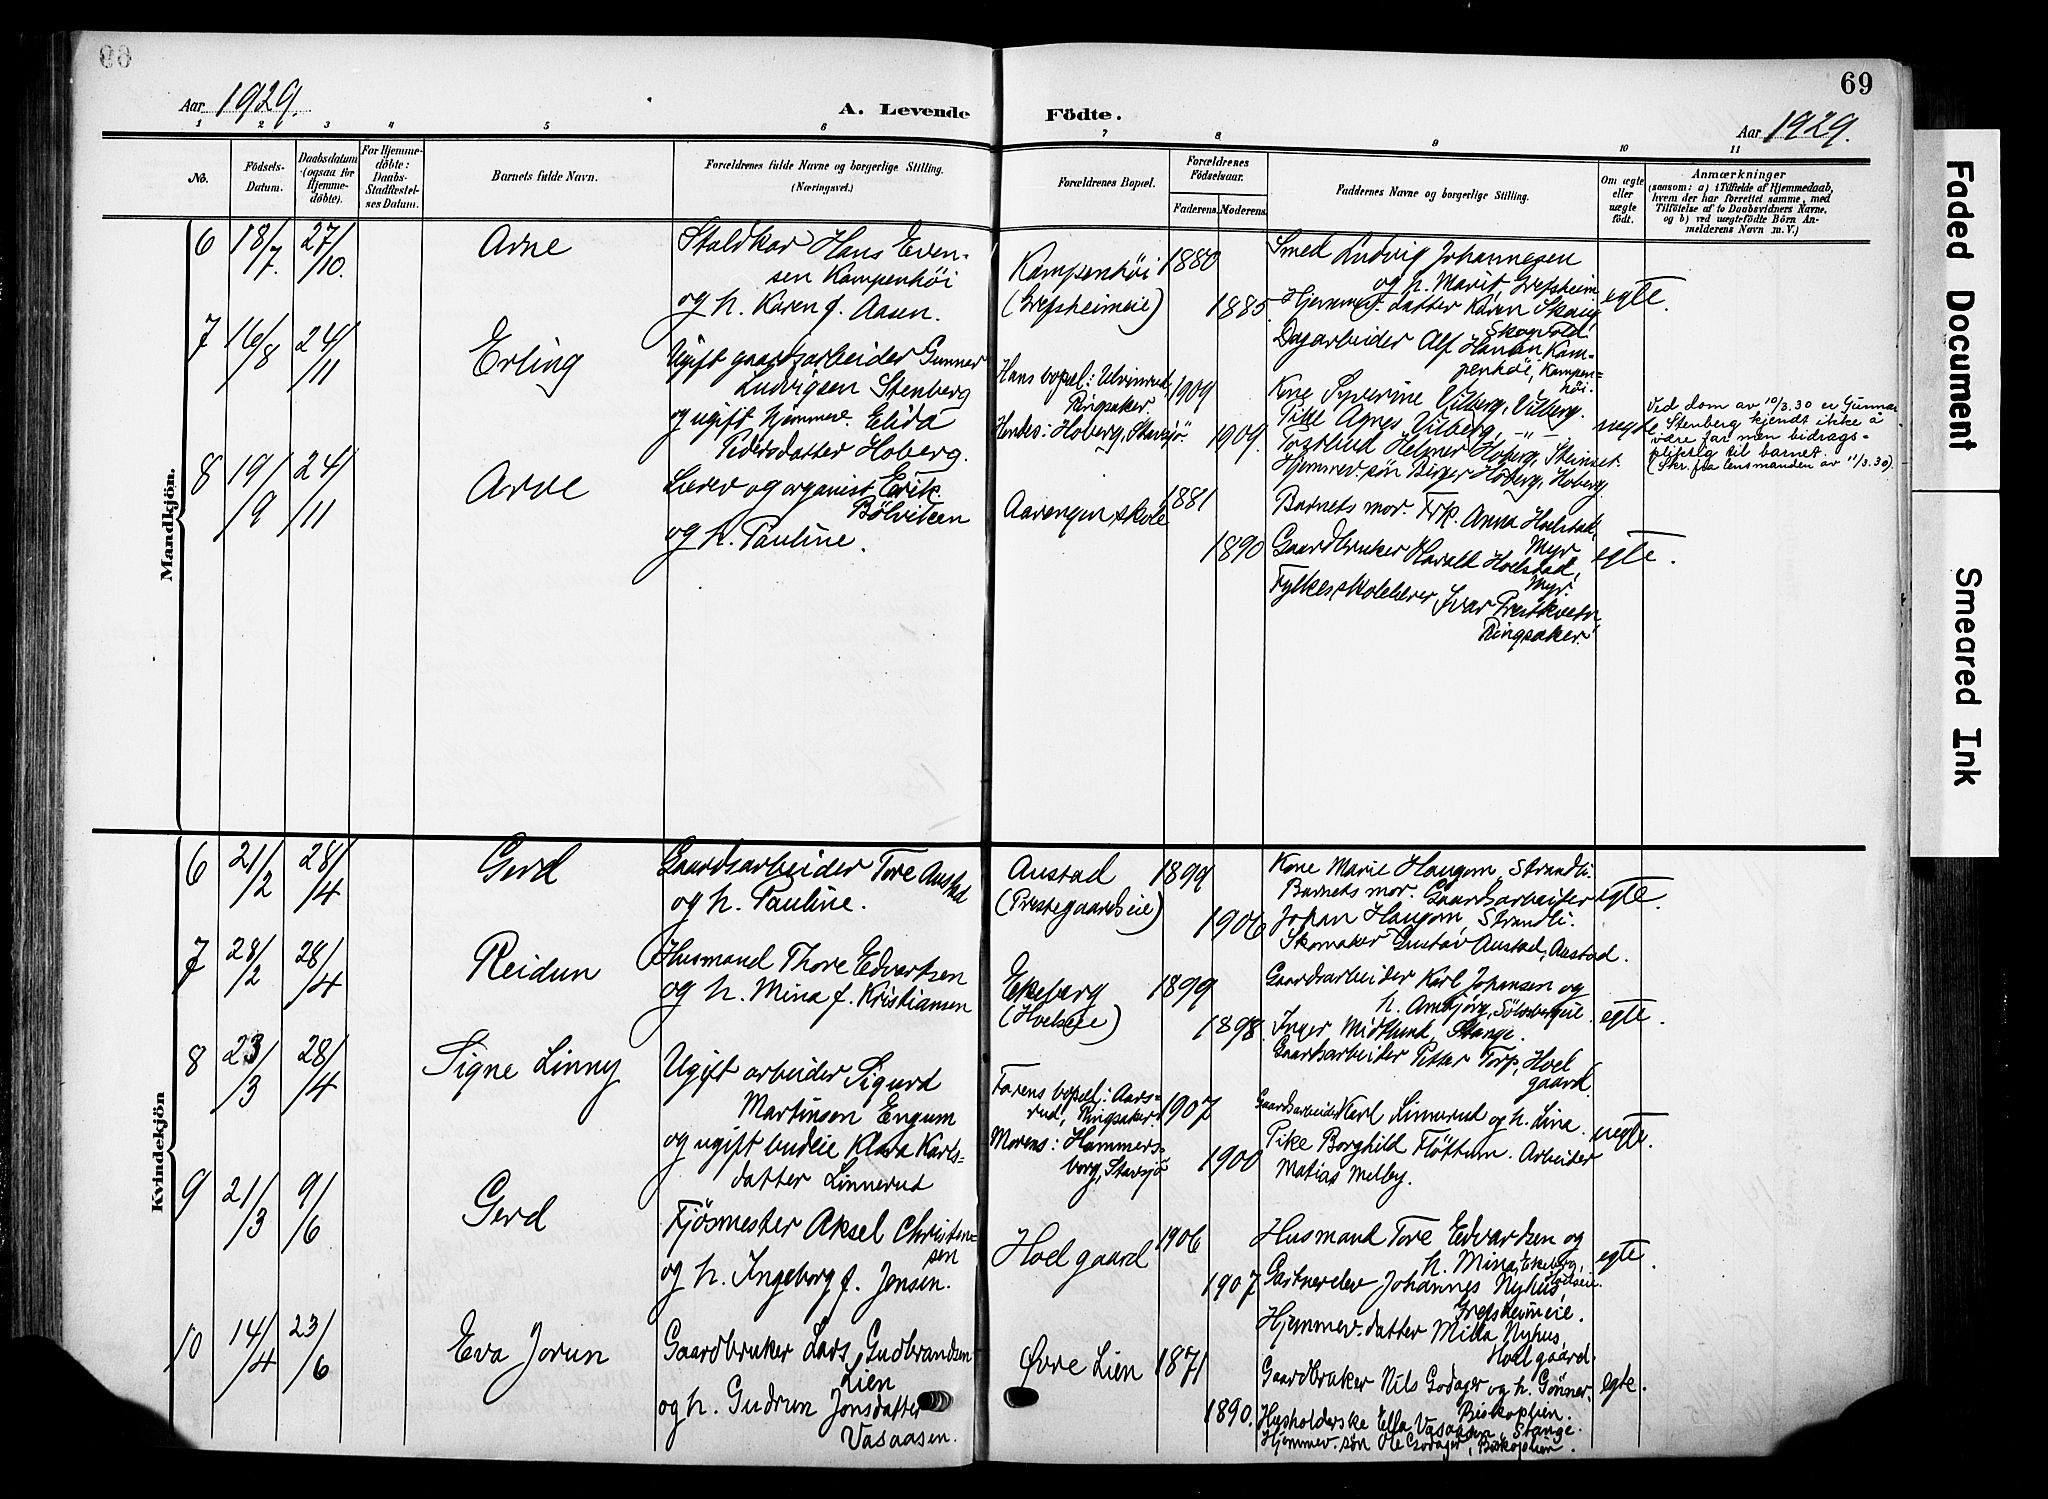 69
Aar 1929.
A. Levende Födte.
Aar 1929.
1 2 3 4 5 6 7 8 9 10 11
No.
Födsels-
Datum.
Daabsdatum
(ogsaa for
Hjemme-
döbte).
For Hjemme-
döbte:
Daabs-
Stadfæstel-
ses Datum.
Barnets fulde Navn.
Forældrenes fulde Navne og borgerlige Stilling.
(Næringsvei.)
Forældrenes Bopæl.
Forældrenes
Födselsaar.
Faderens. Moderens.
Faddernes Navne og borgerlige Stilling.
Om ægte
eller
uægte
födt.
Anmærkninger
(saasom: a) i Tilfælde af Hjemmedaab,
hvem der har forrettet samme, med
Tilföielse af to Daabsvidners Navne,
og b) ved uægtefödte Börn An-
melderens Navn m. V.)
Mandkjön.
6 18/7. 27/10. Arne
Staldkar Hans Even-
sen Kampenhöi
og h. Karen f. Aasen.
Kampenhöi
(Grefsheimeie)
1880
1885.
Smed Ludvig Johannesen
og h. Marit, Grefsheim
Hjemmev. datter Karen Skaug,
Skogvold.
Dagarbeider Alf Hansen Kam-
penhöi, Kampen-
höi.
egte.
7 16/8 24/11 Erling
Ugift gaardsarbeider Gunnar
Ludvigsen Stenberg
og ugift hjemmev. Elida
Pedersdatter Hoberg.
Hans bopæl: Ulvinrud,
Ringsaker.
Hendes: Hoberg, Stavsjö.
1909
1909.
Kone Syverine Vilberg, Vilberg.
Pike Agnes Vilberg, -"-
Torstein Helmer Hoberg, Steinset.
Hjemmev. sön Birger Hoberg, Hoberg.
uegte
Ved dom av 10/3.30 er Gunnar
L. Stenberg kjendt ikke å
være far men bidrags-
pliktig til barnet.
(Skr. fra lensmanden av 11/3.30).
8 19/9 24/11 Arve
Lærer og organist Erik
Bölviken
og h. Pauline.
Aarengen skole
1881
1890
Barnets mor. Frk. Anna Hoelstad,
Myr.
Gaardbruker Harald Hoelstad,
Myr.
Fylkesskolelærer Ivar Prestkvern,
Ringsaker.
egte.
Kvindekjön
6 21/2 28/4 Gerd
Gaardsarbeider Tore Austad
og h. Pauline.
Austad
(Prestegaardseie)
1899
1906
Kone Marie Haugom, Strandli.
Barnets mor. Gaardsarbeider
Johan Haugom, Strandli.
Skomaker Gustav Austad, Austad.
egte.
7 28/2 28/4 Reidun
Husmand Thore Edvartsen
og h. Mina f. Kristiansen
Ekeberg
(Hoelseie)
1899
1898.
Gaardsarbeider Karl Johansen og
h. Ambjörg, Sölvsbergeie.
Inger Midtlund, Stange.
Gaardsarbeider Petter Torp, Hoel
gaard.
egte.
8 23/3 28/4 Signe Linny
Ugift arbeider Sigurd
Martinsen Engum
og ugift budeie Klara Karls-
datter Linnerud
Farens bopæl: Aars-
rud, Ringsaker.
Morens: Hammers-
borg, Stavsjö
1907
1900
Gaardsarbeider Karl Linnerud og h. Lina.
Pike Borghild Fløttum. Arbeider
Matias Melby.
uegte.
9 21/3 9/6 Gerd
Fjösmester Aksel Christen-
sen
og h. Ingeborg f. Jensen.
Hoel gaard
1906
1907
Husmand Tore Edvardsen og
h. Mina, Ekeberg,
Hoelseie.
Gartnerelev Johannes Nyhus,
Grefsheimeie.
Hjemmev. datter Milla Nyhus,
Hoel gaard.
egte.
10 14/4 23/6 Eva Jorun
Gaardbruker Lars Gudbrandsen
Lien
og h. Gudrun Jonsdatter
Vasaasen.
Øvre Lien
1871
1890.
Gaardbruker Nils Godager og h. Gønner,
Biskoplien.
Husholderske Ella Vasaasen, Stange.
Hjemmev. sön Ole Godager, Biskoplien.
egte.
Faded Document
Smeared Ink